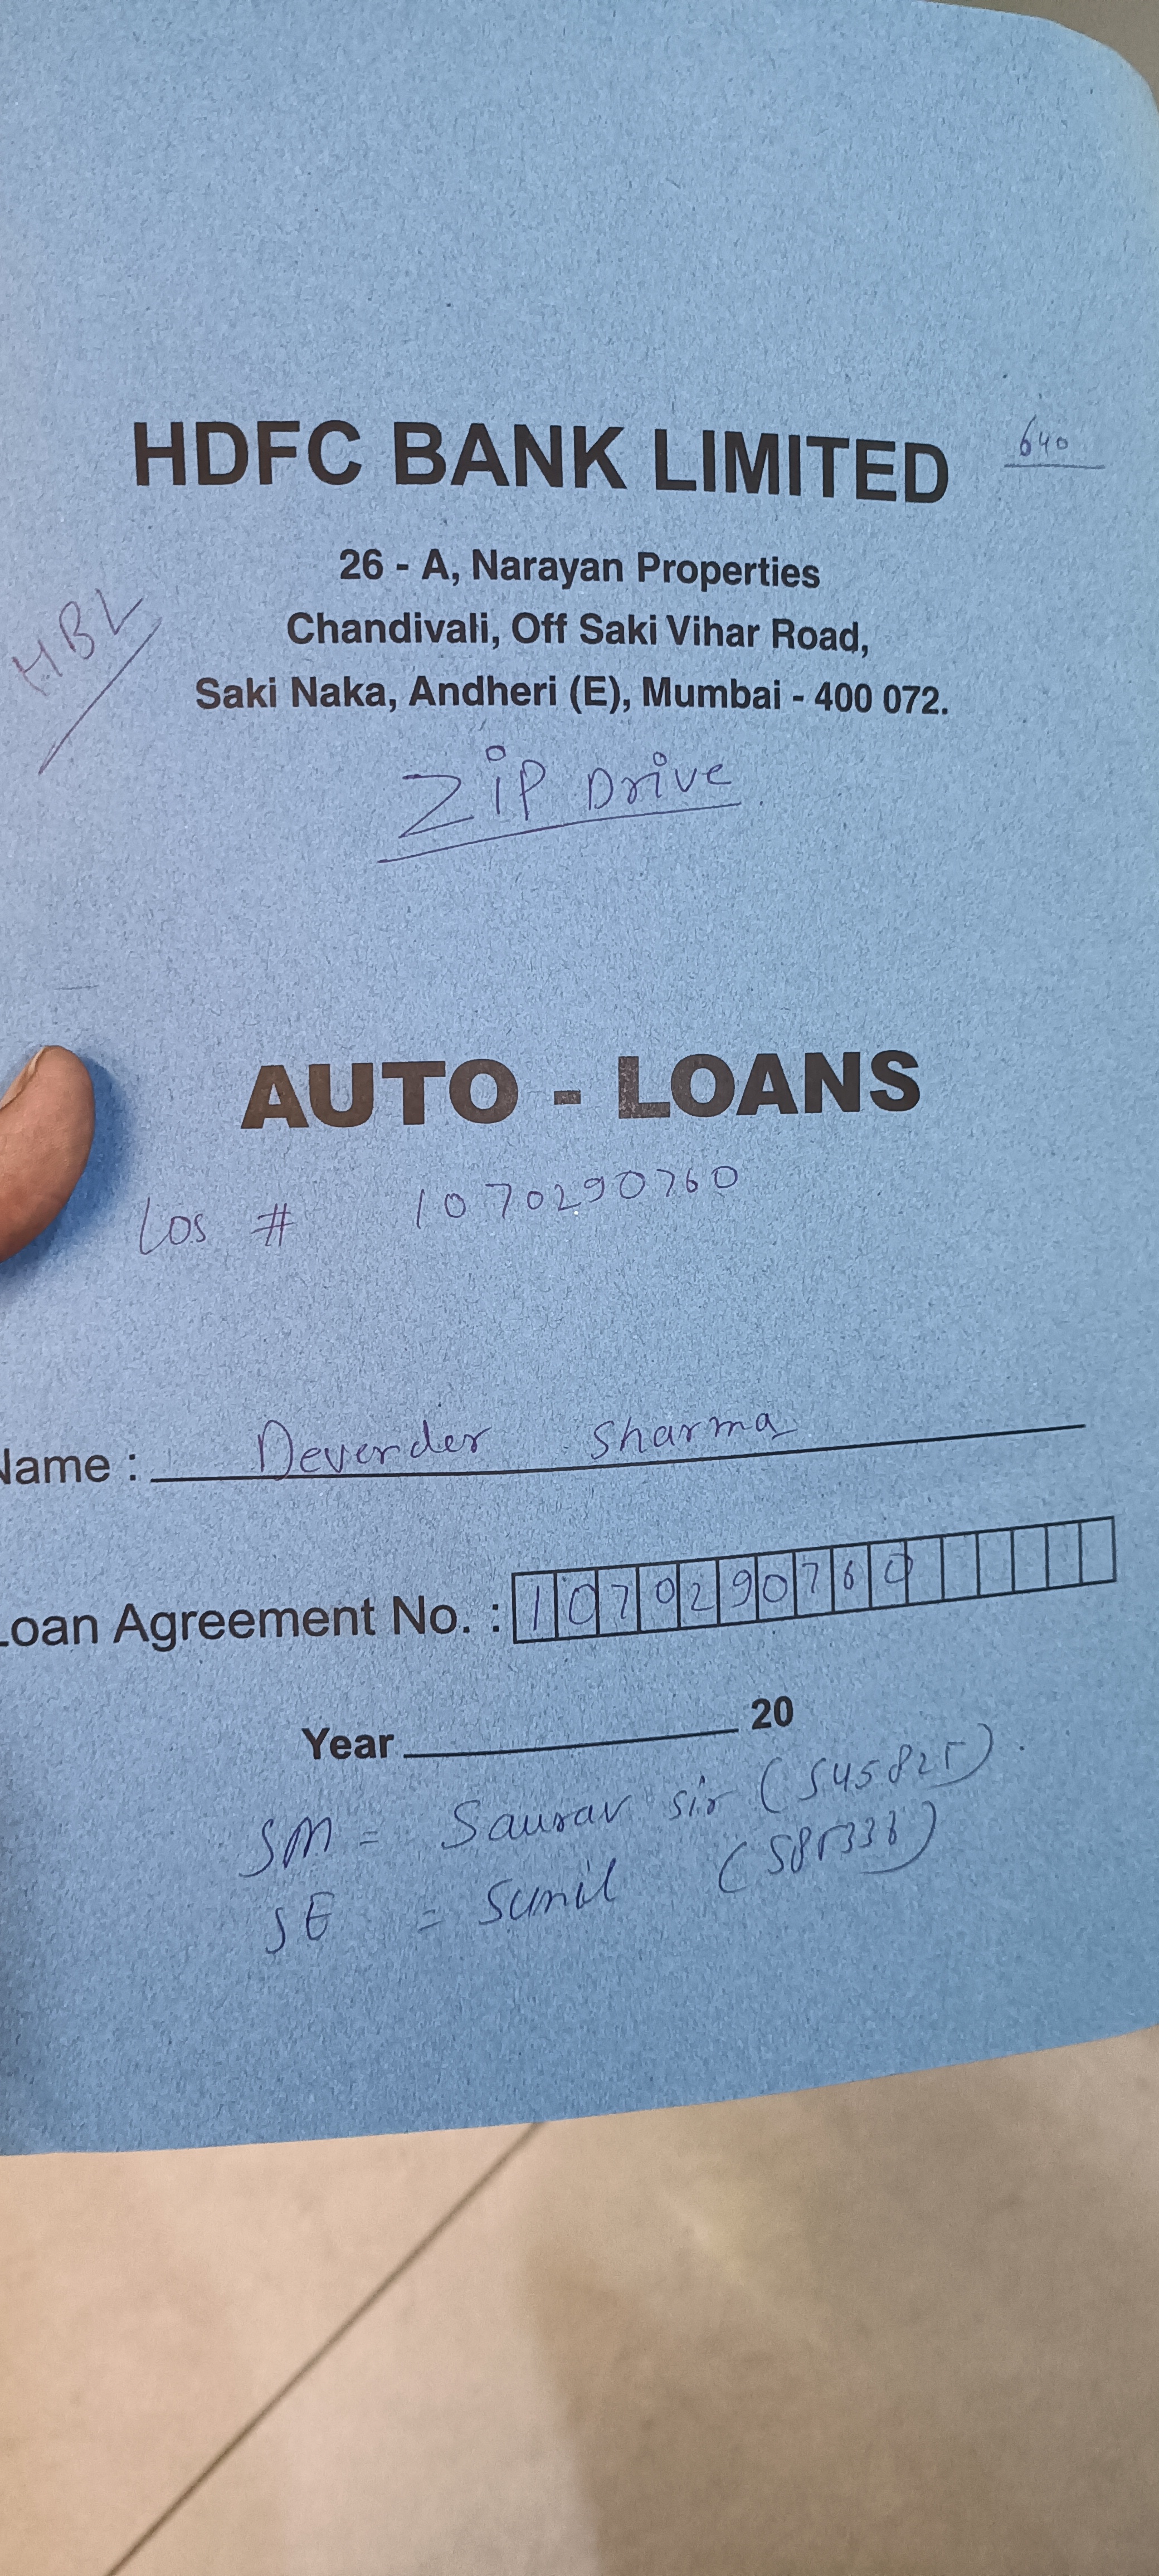 HDFC BANK LIMITED 640
26 - A, Narayan Properties
Chandivali, Off Saki Vihar Road,
HBL
Saki Naka, Andheri (E), Mumbai - 400 072.
Zip Drive
AUTO - LOANS
Los # 1070290760
Name : Devender Sharma
Loan Agreement No. : 1070290760
Year 20
SM = Saurav sir (S45825)
SE = Sunil (S85336)